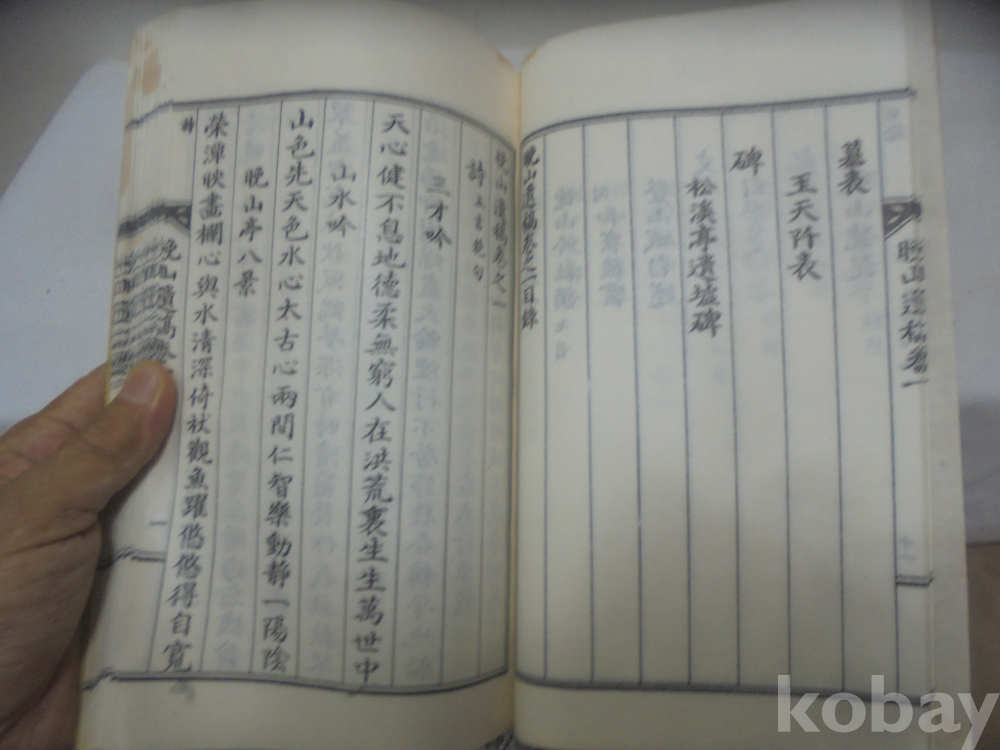 晩山遺稿卷一
墓表
王天阡表
碑
松溪亭遺墟碑
晩山遺稿卷之一目錄
晩山遺稿卷之一
詩 五言絶句
三才吟
天心健不息地德柔無窮人在洪荒裏生生萬世中
山水吟
山色先天色水心太古心兩間仁智樂動靜一陽陰
晩山亭八景
榮潭映畫欄心與水清深倚秋觀魚躍悠悠得自寬
晩山遺稿卷
kobay